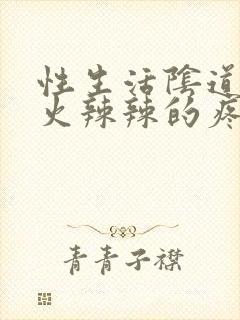 性生活陰道
火辣辣的疼
青青子襟